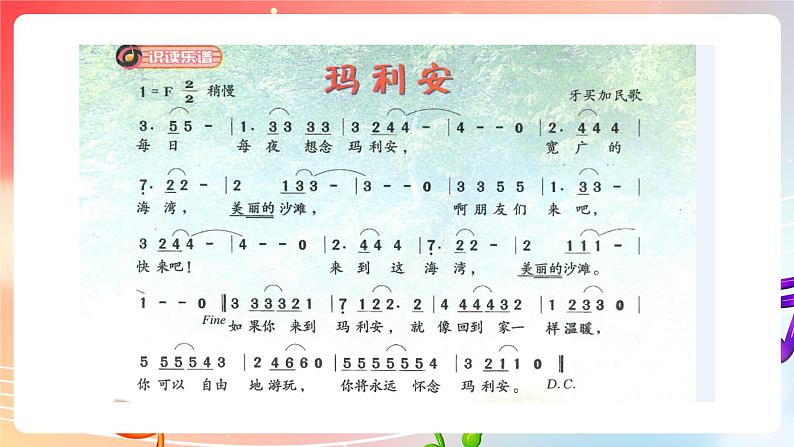 识读乐谱
玛利安
1=F 2/2 稍慢
牙买加民歌
3. 5 5 - | 1. 3 3 3 3 | 3 2 4 4 - | 4 - - 0 | 2. 4 4 4 |
每日 每夜 想念 玛利安， 宽广的
7. 2 2 - | 2 1 3 3 - | 3 - - 0 | 3 3 5 5 | 1. 3 3 - |
海湾， 美丽的沙滩， 啊朋友们 来吧，
3 2 4 4 - | 4 - - 0 | 2. 4 4 4 | 7. 2 2 - | 2 1 1 1 - |
快来吧！ 来到这 海湾， 美丽的沙滩。
1 - - 0 ‖ 3 3 3 3 2 1 | 7 1 2 2. 2 | 4 4 4 4 3 2 | 1 2 3 3 0 |
Fine 如果你 来到 玛利安， 就 像回到 家一 样温暖，
5 5 5 5 5 4 3 | 2 4 6 6 0 | 5 5 5 5 5 5 4 | 3 2 1 1 0 ‖
你可以 自由 地游玩， 你将永远 怀念 玛利安。 D.C.